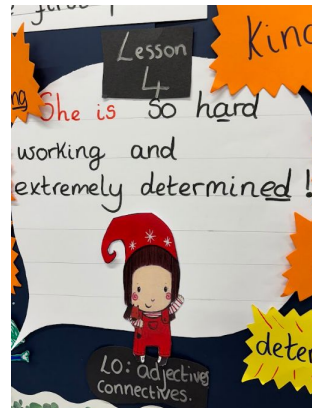 Lesson
4
Kind
She is so hard
working and
extremely determined!
LO: adjectives
connectives.